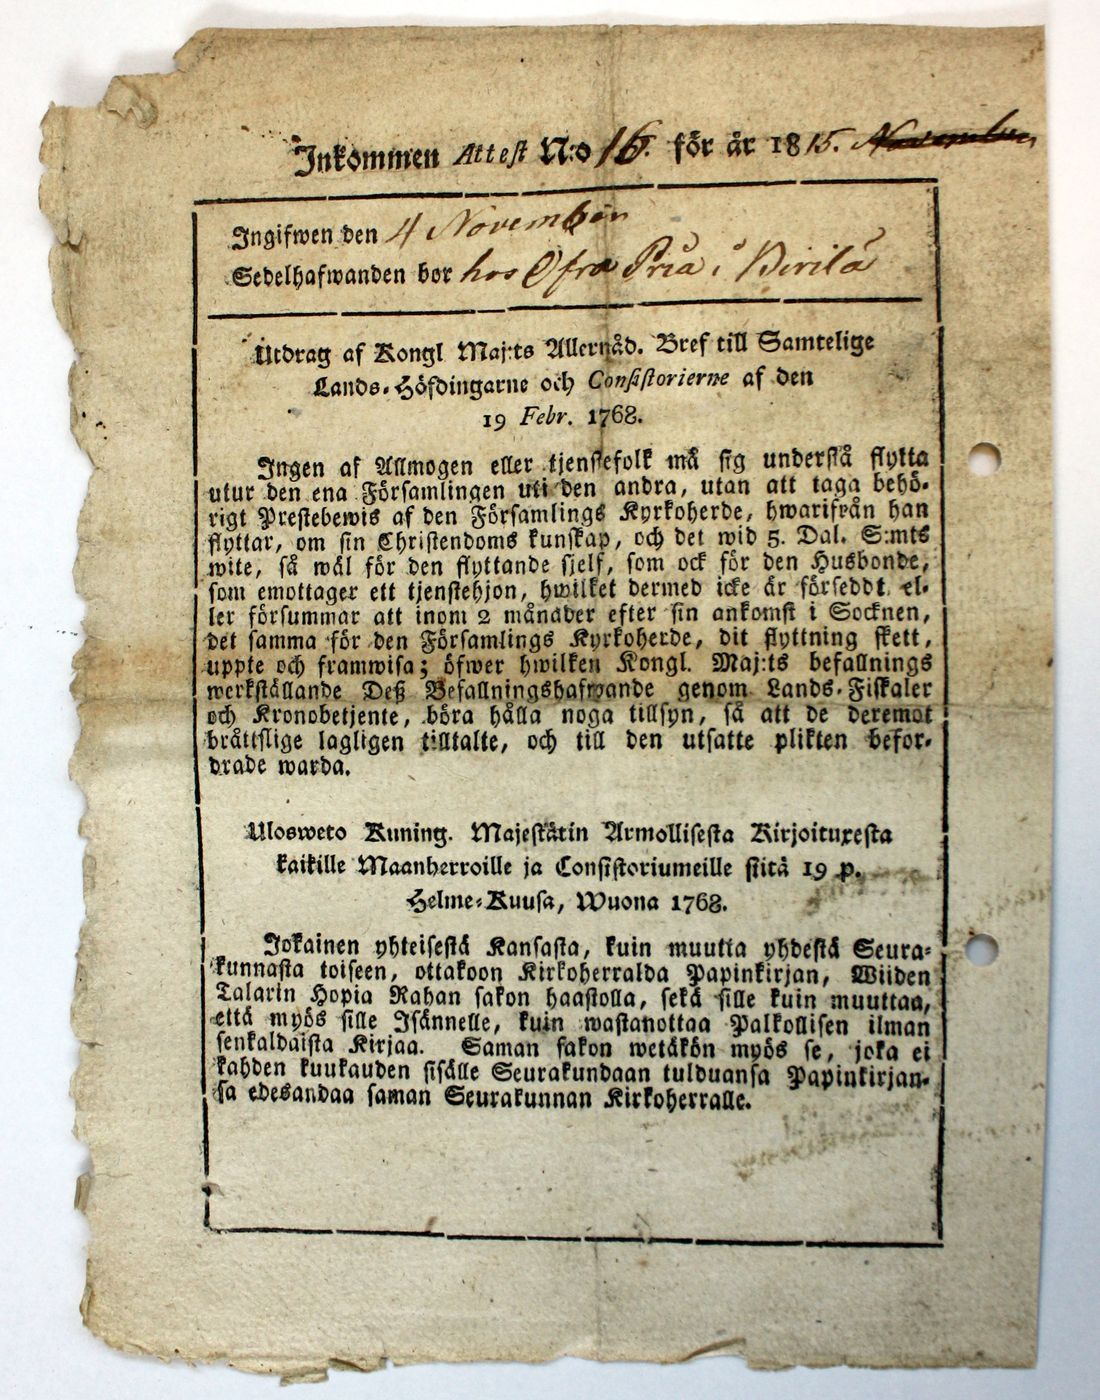 Inkommen Attest N:o 16. för år 1815. November
Ingifwen den 4 November
Sedelhafwanden bor hos Öfra Pria i Birilä
Utdrag af Kongl Maj:ts Allernåd. Bref till Samtelige
Lands-Höfdingarne och Consistorierne af den
19 Febr. 1768.
Ingen af Allmogen eller tjenstefolk må sig understå flytta
utur den ena Församlingen uti den andra, utan att taga behö-
rigt Prestebewis af den Församlings Kyrkoherde, hwarifrån han
flyttar, om sin Christendoms kunskap, och det wid 5. Dal. S:mts
wite, så wäl för den flyttande sjelf, som ock för den Husbonde,
som emottager ett tjenstehjon, hwilket dermed icke är förseddt el-
ler försummar att inom 2 månader efter sin ankomst i Socknen,
det samma för den Församlings Kyrkoherde, dit flyttning skett,
uppte och framwisa; öfwer hwilken Kongl. Maj:ts befallnings
werkställande Deß Befallningshafwande genom Lands-Fiskaler
och Kronobetjente, böra hålla noga tillsyn, så att de deremot
bråttslige lagligen tilltalte, och till den utsatte plikten befor-
drade warda.
Ulosweto Kuning. Majestätin Armollisesta Kirjoituxesta
kaikille Maanherroille ja Consistoriumeille siitä 19 p.
Helme-Kuusa, Wuona 1768.
Jokainen yhteisestä Kansasta, kuin muutta yhdestä Seura-
kunnasta toiseen, ottakoon Kirkoherralda Papinkirjan, Wiiden
Talarin Hopia Rahan sakon haastolla, sekä sille kuin muuttaa,
että myös sille Isännelle, kuin wastanottaa Palkollisen ilman
senkaldaista Kirjaa. Saman sakon wetäkön myös se, joka ei
kahden kuukauden sisälle Seurakundaan tulduansa Papinkirjan-
sa edesandaa saman Seurakunnan Kirkoherralle.